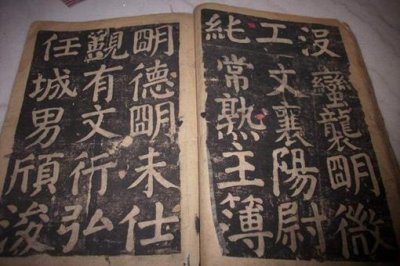 没蠻襲明微
工文襄陽尉
常熟主簿
明德明未仕
覿有文行弘
任城男頎浚